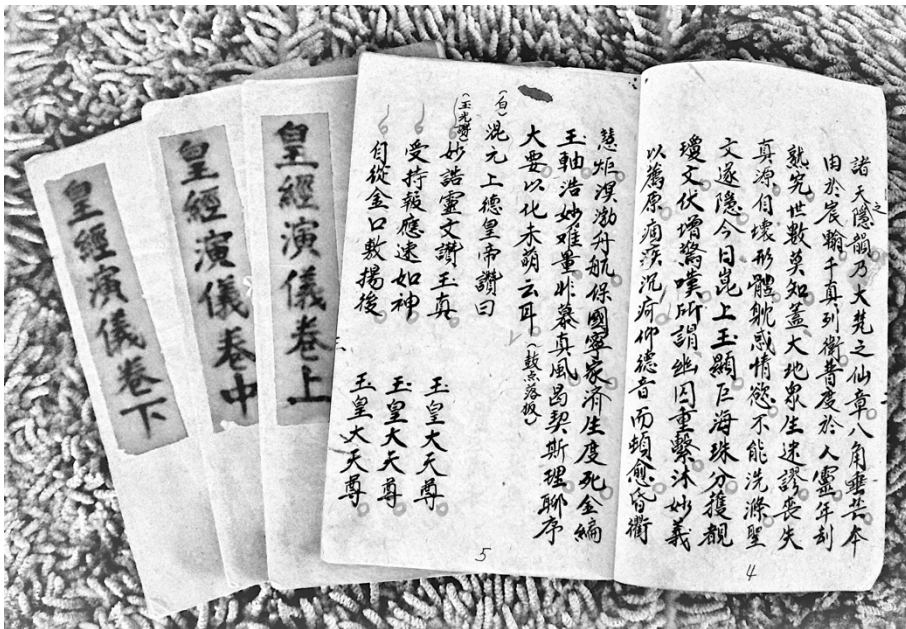 皇經演儀卷上
皇經演儀卷中
皇經演儀卷下
諸天隱韻乃大梵之仙章八角垂芒本
之
由於宸翰千真列衛普度於人靈年刦
就究世數莫知蓋大地衆生迷謬喪失
真源自壞形體躭惑情慾不能洗滌聖
文遂隱今日崑上玉顯巨海珠分獲覩
瓊文伏增驚嘆所謂幽囚重繫沐妙義
以薦原痼疾沉疴仰德音而頓愈昏衢
4
慧炬溟渤舟航保國寧家濟生度死金編
玉軸浩妙难量非慕真風曷契斯理聊序
大要以化未萌云耳(鼓点落板)
(白)混元上德皇帝讚曰
(玉光嘴)妙誥靈文讚玉真 玉皇大天尊
受持報應速如神 玉皇大天尊
自從金口敷揚後 玉皇大天尊
5